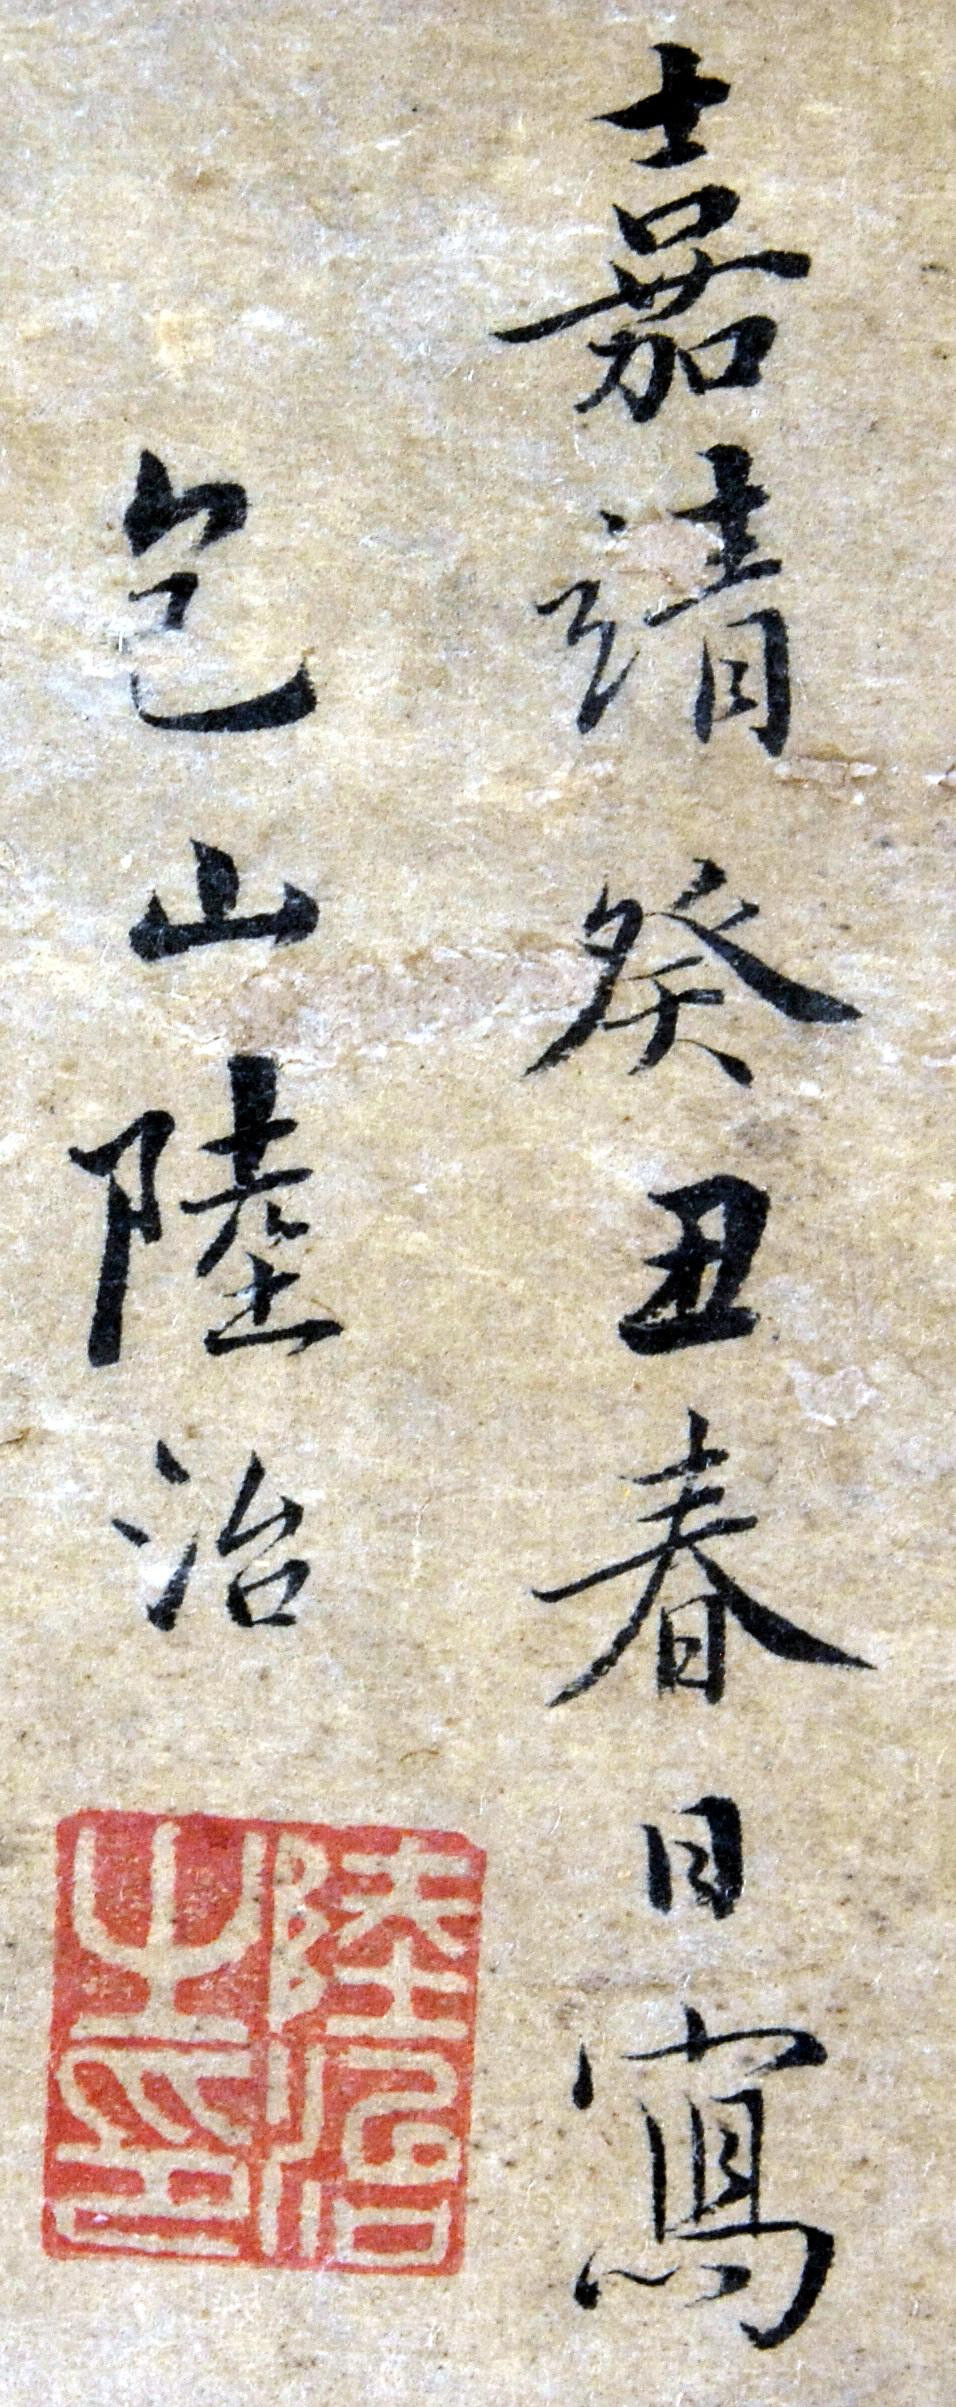 嘉靖癸丑春日寫
包山陸治
陸治之印